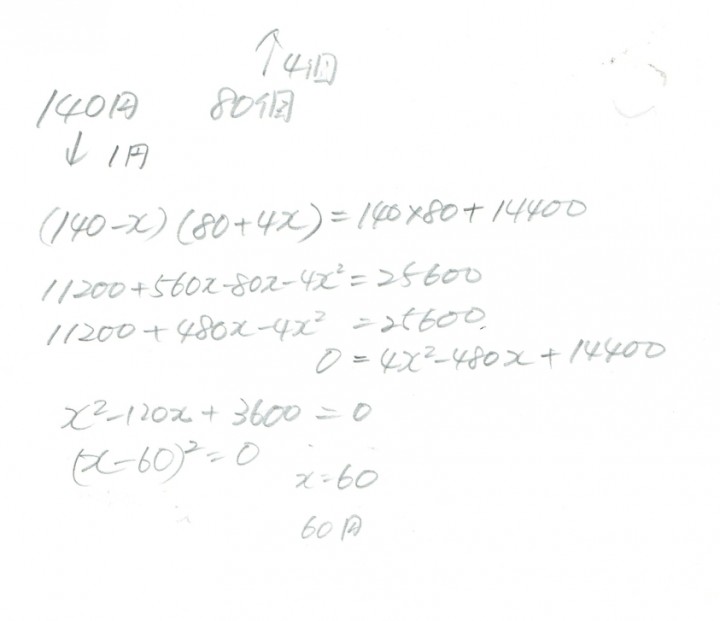 ↑4個
140円 80個
↓1円
(140-x)(80+4x)=140×80+14400
11200+560x-80x-4x²=25600
11200+480x-4x²=25600
0=4x²-480x+14400
x²-120x+3600=0
(x-60)²=0
x=60
60円